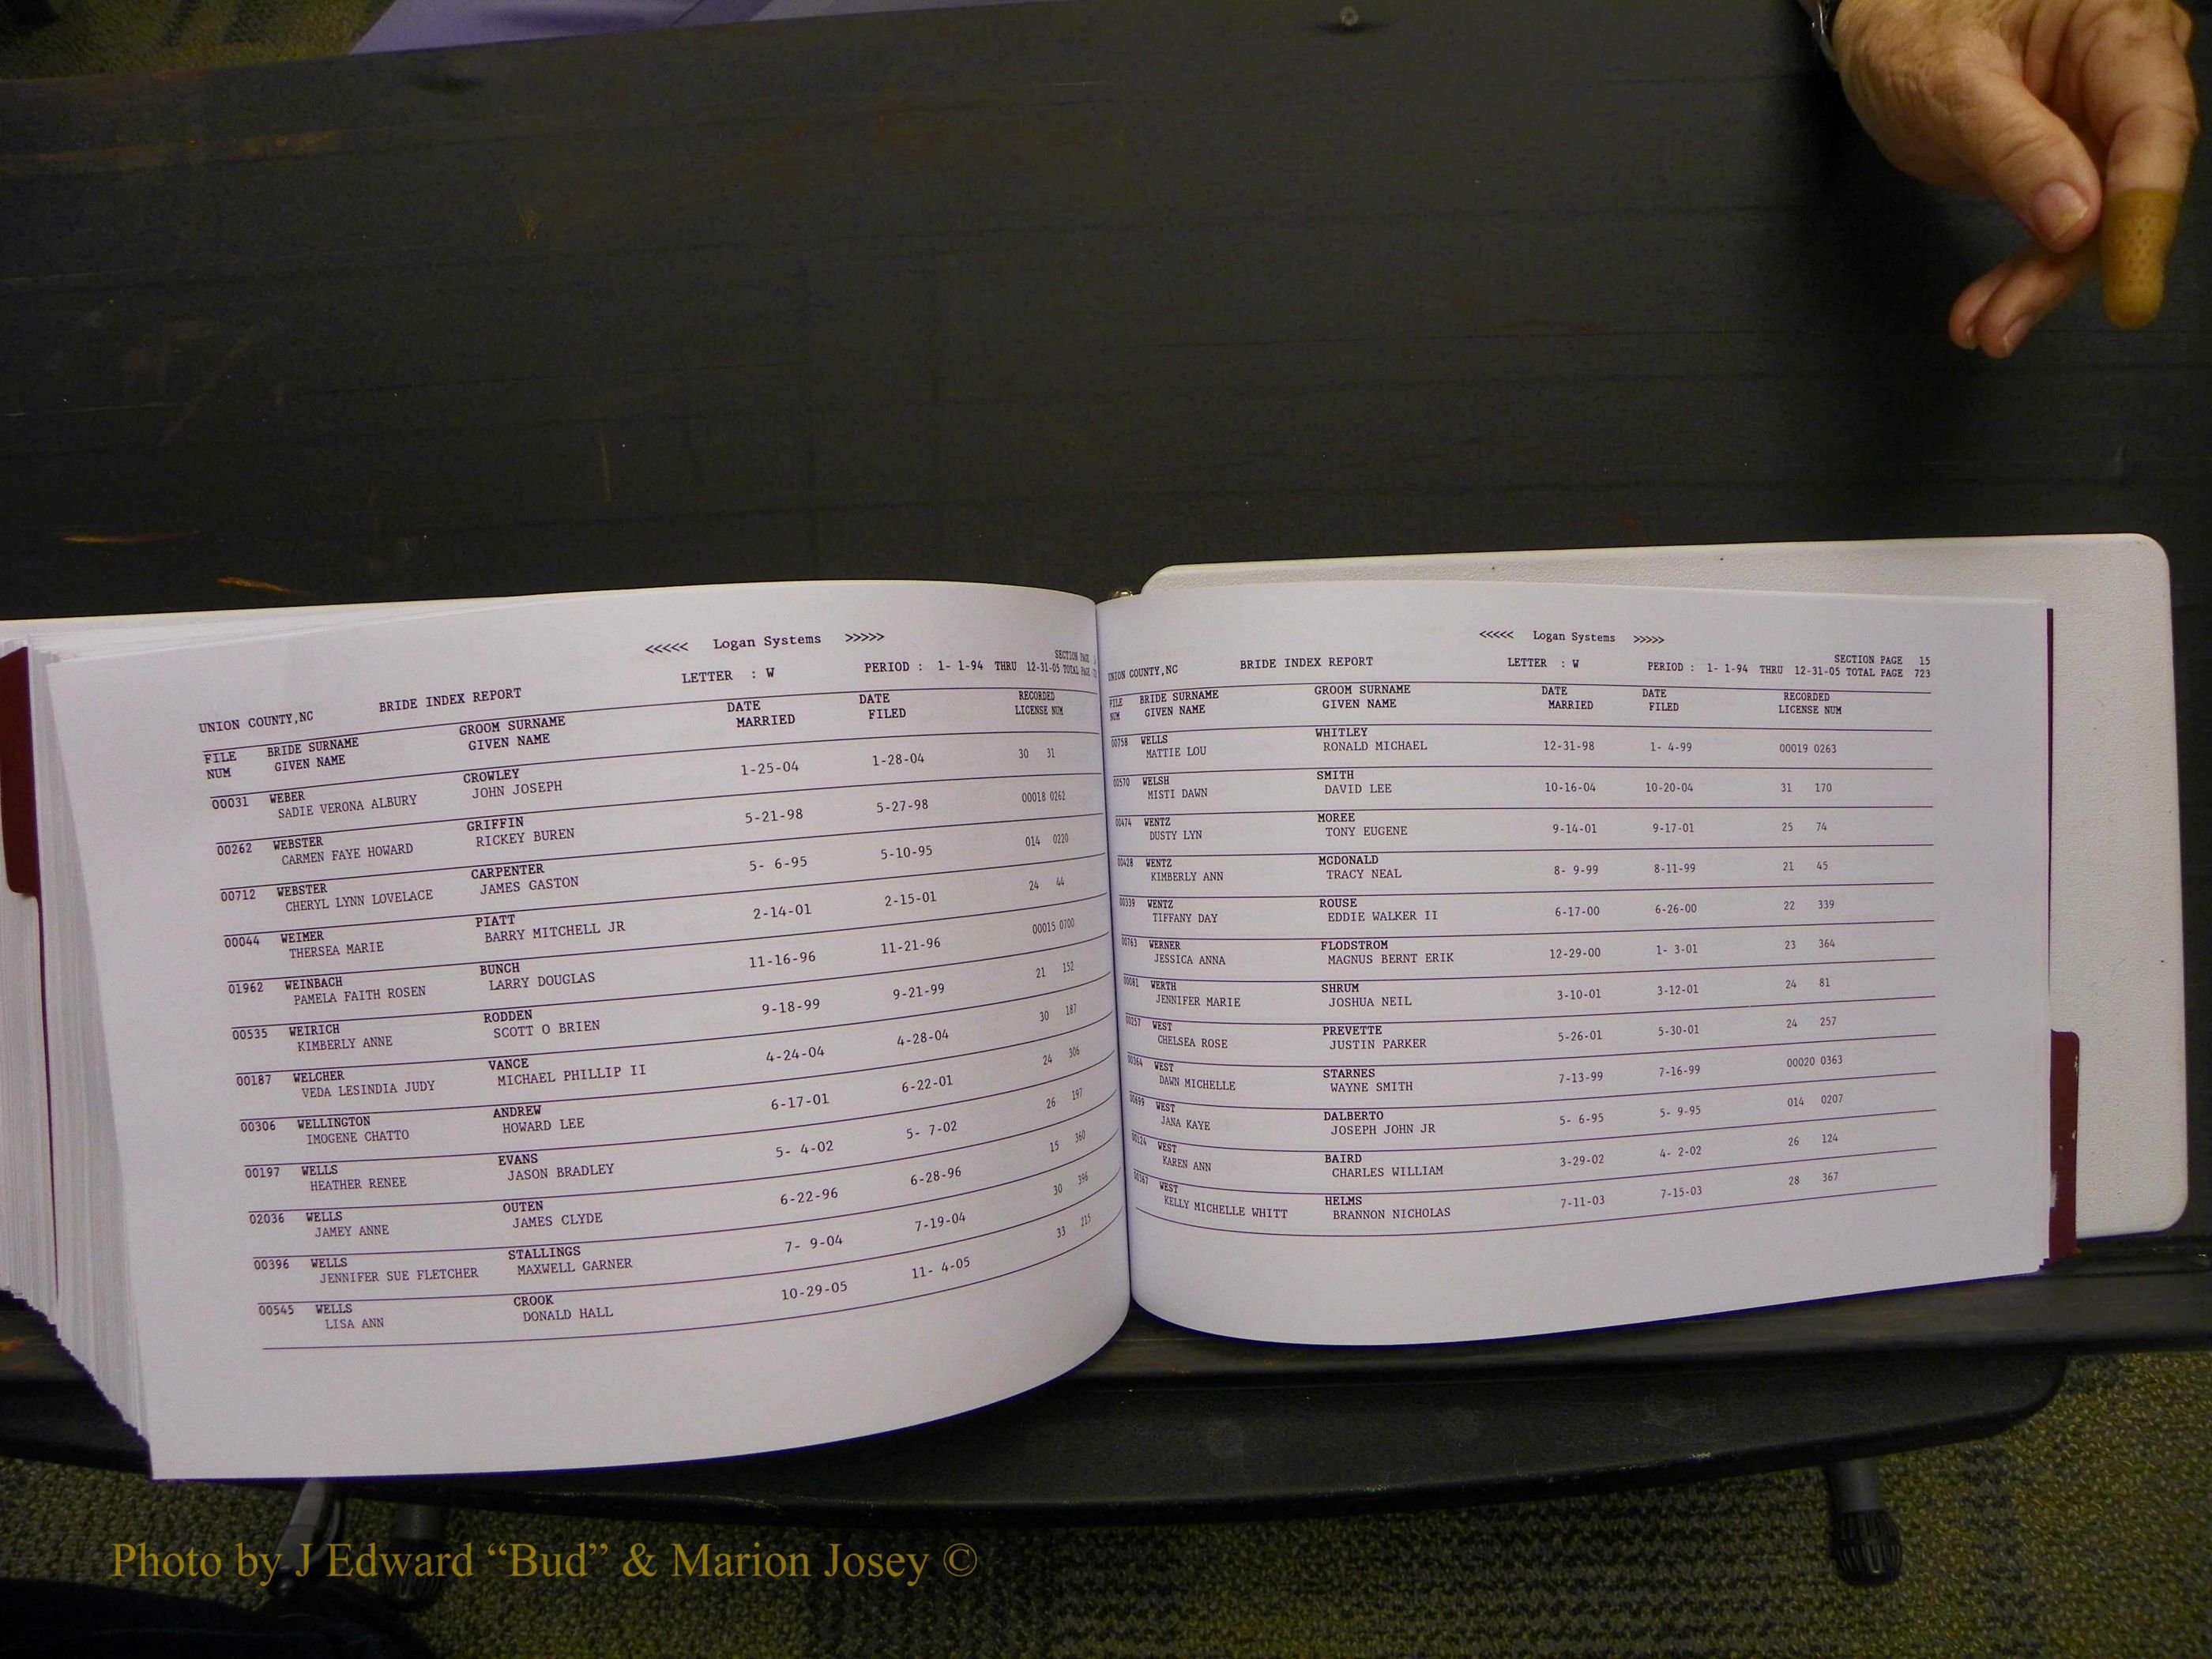 <<<<< Logan Systems >>>>>
UNION COUNTY,NC BRIDE INDEX REPORT LETTER : W PERIOD : 1- 1-94 THRU 12-31-05 TOTAL PAGE
SECTION PAGE
FILE NUM BRIDE SURNAME GIVEN NAME GROOM SURNAME GIVEN NAME DATE MARRIED DATE FILED RECORDED LICENSE NUM
00031 WEBER CROWLEY 1-25-04 1-28-04 30 31
SADIE VERONA ALBURY JOHN JOSEPH
00262 WEBSTER GRIFFIN 5-21-98 5-27-98 00018 0262
CARMEN FAYE HOWARD RICKEY BUREN
00712 WEBSTER CARPENTER 5- 6-95 5-10-95 014 0220
CHERYL LYNN LOVELACE JAMES GASTON
00044 WEIMER PIATT 2-14-01 2-15-01 24 44
THERSEA MARIE BARRY MITCHELL JR
01962 WEINBACH BUNCH 11-16-96 11-21-96 00015 0700
PAMELA FAITH ROSEN LARRY DOUGLAS
00535 WEIRICH RODDEN 9-18-99 9-21-99 21 152
KIMBERLY ANNE SCOTT O BRIEN
00187 WELCHER VANCE 4-24-04 4-28-04 30 187
VEDA LESINDIA JUDY MICHAEL PHILLIP II
00306 WELLINGTON ANDREW 6-17-01 6-22-01 24 306
IMOGENE CHATTO HOWARD LEE
00197 WELLS EVANS 5- 4-02 5- 7-02 26 197
HEATHER RENEE JASON BRADLEY
02036 WELLS OUTEN 6-22-96 6-28-96 15 360
JAMEY ANNE JAMES CLYDE
00396 WELLS STALLINGS 7- 9-04 7-19-04 30 396
JENNIFER SUE FLETCHER MAXWELL GARNER
00545 WELLS CROOK 10-29-05 11- 4-05 33 215
LISA ANN DONALD HALL
<<<<< Logan Systems >>>>>
SECTION PAGE 15
UNION COUNTY,NC BRIDE INDEX REPORT LETTER : W PERIOD : 1- 1-94 THRU 12-31-05 TOTAL PAGE 723
FILE NUM BRIDE SURNAME GIVEN NAME GROOM SURNAME GIVEN NAME DATE MARRIED DATE FILED RECORDED LICENSE NUM
00758 WELLS WHITLEY 12-31-98 1- 4-99 00019 0263
MATTIE LOU RONALD MICHAEL
00570 WELSH SMITH 10-16-04 10-20-04 31 170
MISTI DAWN DAVID LEE
00474 WENTZ MOREE 9-14-01 9-17-01 25 74
DUSTY LYN TONY EUGENE
00428 WENTZ MCDONALD 8- 9-99 8-11-99 21 45
KIMBERLY ANN TRACY NEAL
00339 WENTZ ROUSE 6-17-00 6-26-00 22 339
TIFFANY DAY EDDIE WALKER II
00763 WERNER FLODSTROM 12-29-00 1- 3-01 23 364
JESSICA ANNA MAGNUS BERNT ERIK
00081 WERTH SHRUM 3-10-01 3-12-01 24 81
JENNIFER MARIE JOSHUA NEIL
00257 WEST PREVETTE 5-26-01 5-30-01 24 257
CHELSEA ROSE JUSTIN PARKER
00364 WEST STARNES 7-13-99 7-16-99 00020 0363
DAWN MICHELLE WAYNE SMITH
00699 WEST DALBERTO 5- 6-95 5- 9-95 014 0207
JANA KAYE JOSEPH JOHN JR
00124 WEST BAIRD 3-29-02 4- 2-02 26 124
KAREN ANN CHARLES WILLIAM
00367 WEST HELMS 7-11-03 7-15-03 28 367
KELLY MICHELLE WHITT BRANNON NICHOLAS
Photo by J Edward “Bud” & Marion Josey ©